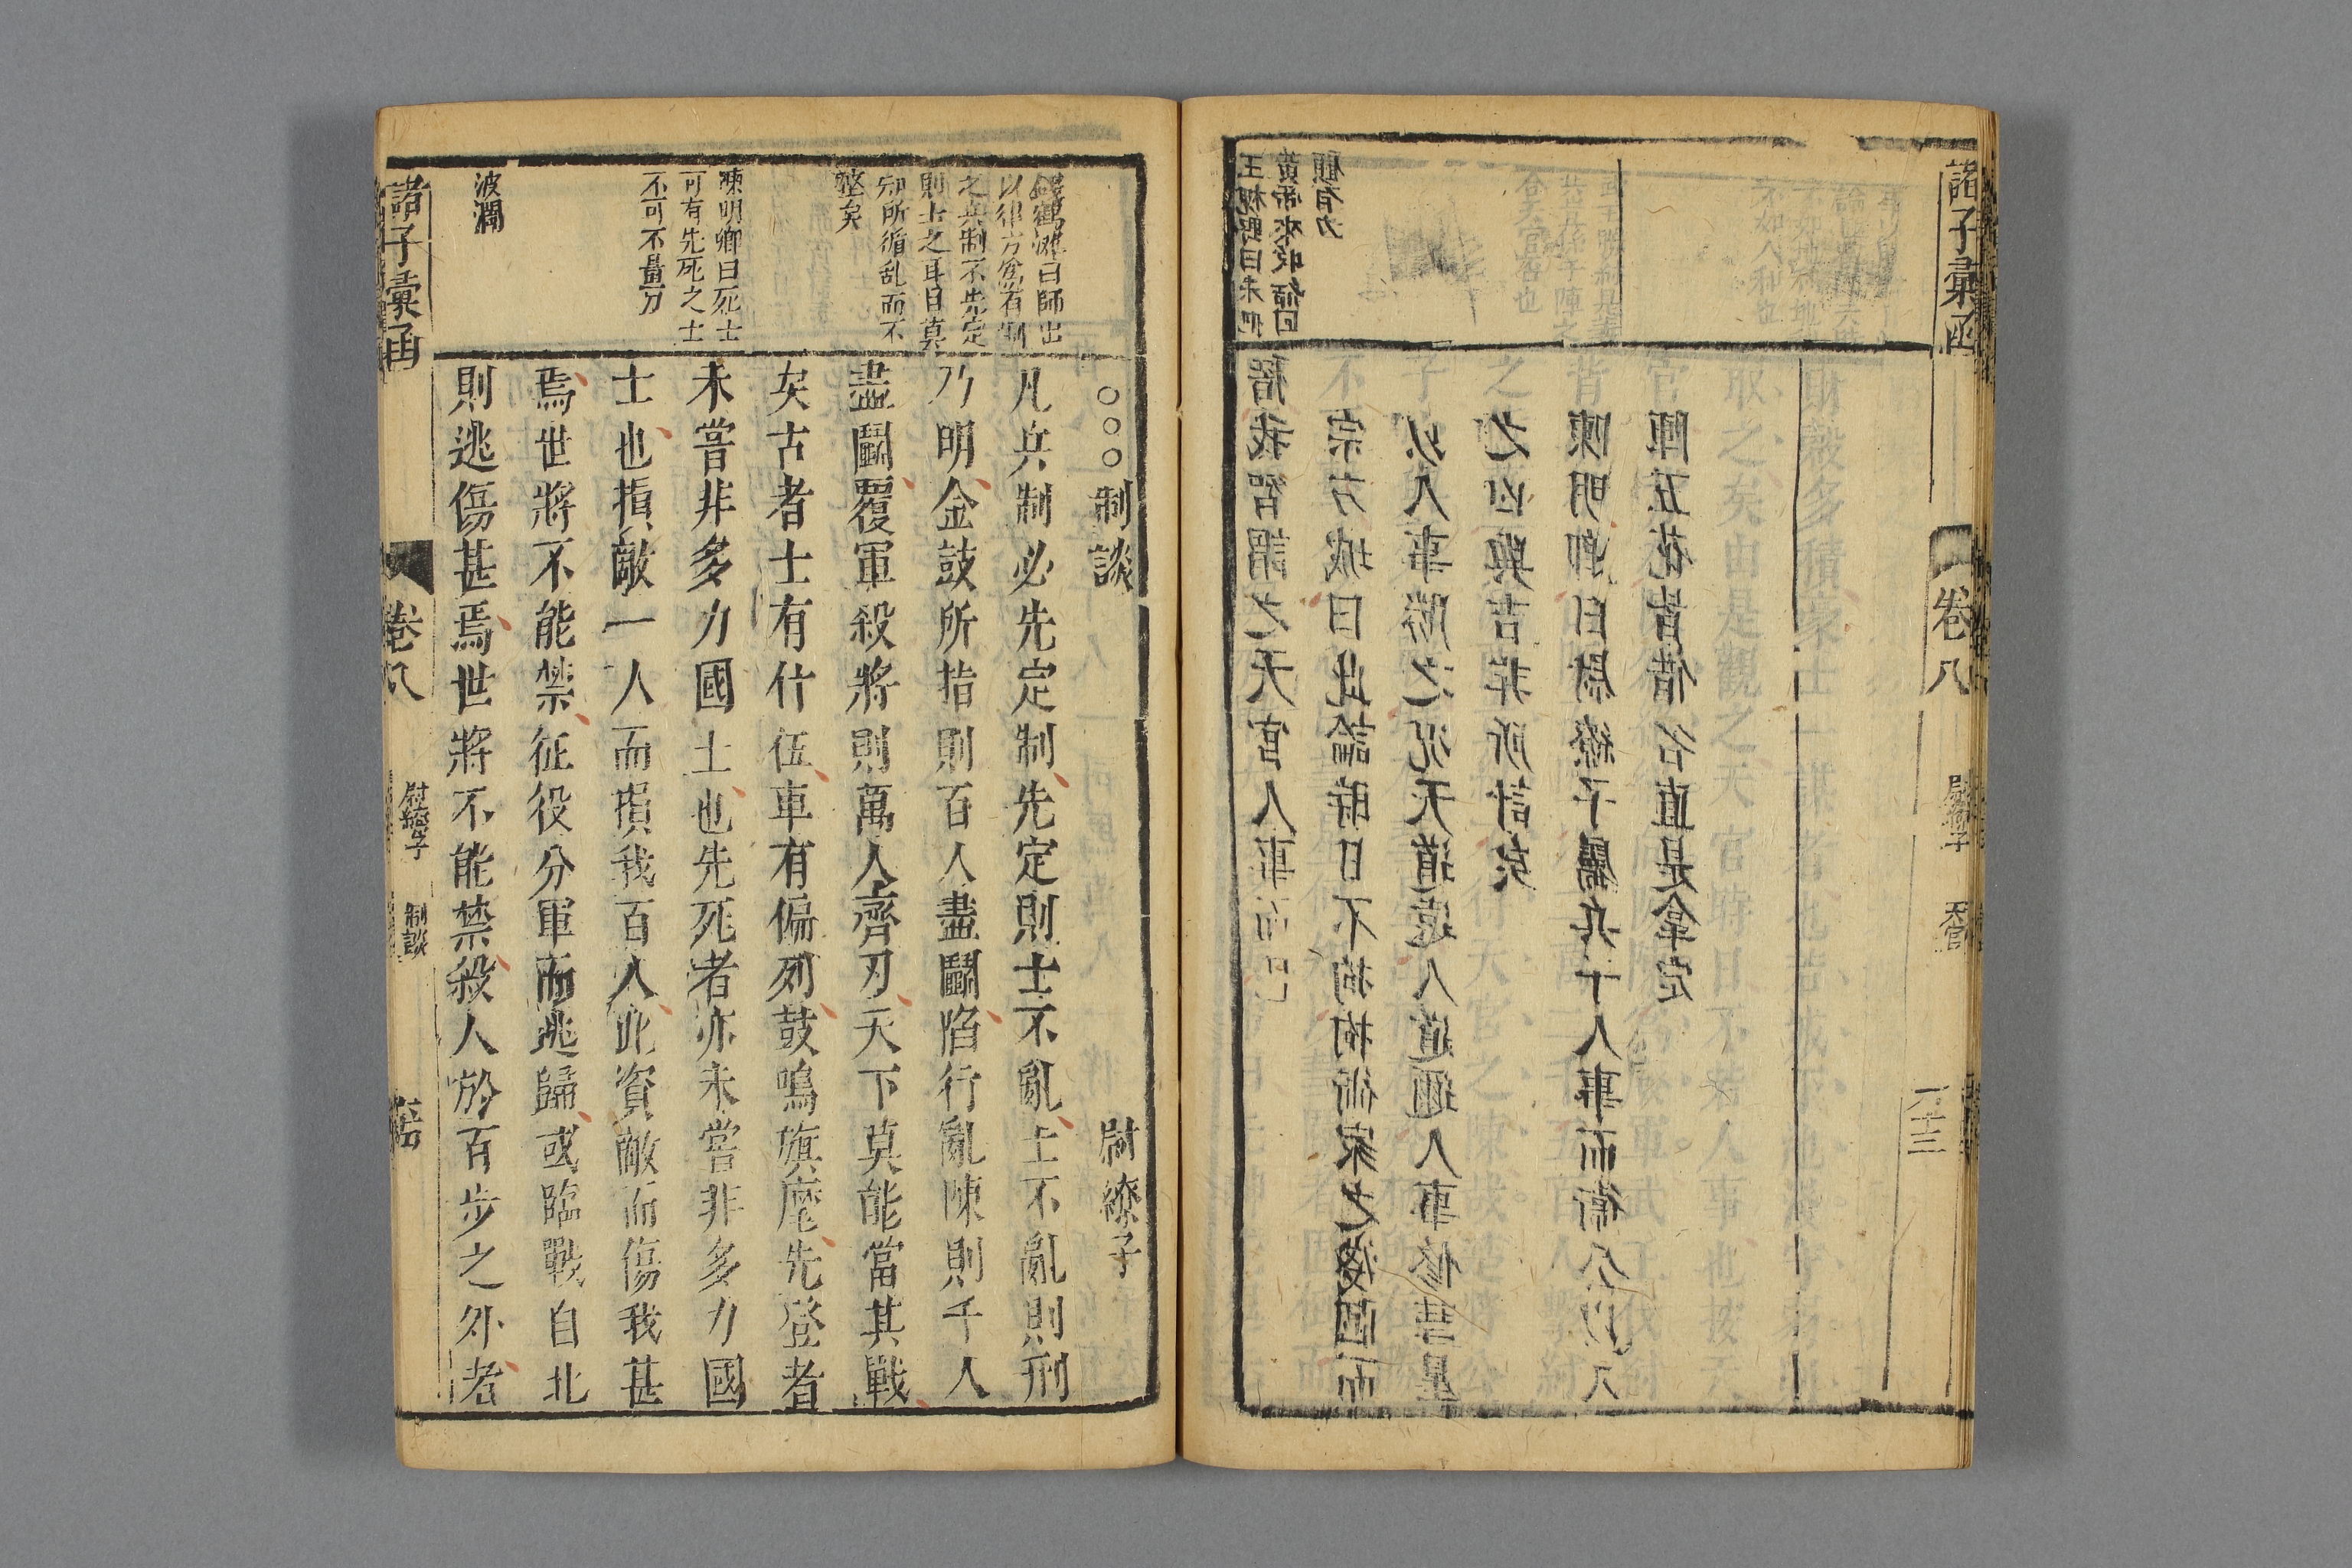 諸子彙函
卷八
尉繚子
天官
一十三
王槐野曰未把
黃帝來收煞回
顧有力
稽我智謂之天官人事而已
宗方城曰此論時日不拘拘術家之說固而
以人事勝之況天道遠人道邇人事修葺是
之凶與吉非所計矣
陳明卿曰尉繚子屬兵十人事而術公以八
陣五花皆借名直是拿定
錢鶴灘曰師出
以律方為有制
之兵制不先定
則士之耳目莫
知所循乱而不
整矣
陳明卿曰死士
可有先死之士
不可不量力
波瀾
○○○制談 尉繚子
凡兵制必先定制先定則士不亂士不亂則刑
乃明金鼓所指則百人盡鬭陷行亂陳則千人
盡鬭覆軍殺將則萬人齊刃天下莫能當其戰
矣古者士有什伍車有偏列鼓鳴旗麾先登者
未嘗非多力國士也先死者亦未嘗非多力國
士也損敵一人而損我百人此資敵而傷我甚
焉世將不能禁征役分軍而逃歸或臨戰自北
則逃傷甚焉世將不能禁殺人於百步之外者
諸子彙函
卷八
尉繚子
制談